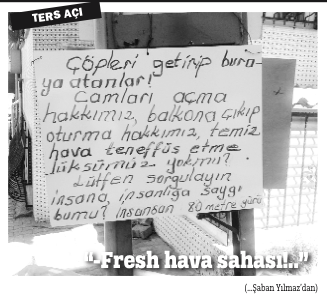 TERS AÇI
Çöpleri getirip bura-
ya atanlar!
Camları açma
hakkımız, balkona çıkıp
oturma hakkımız, temiz
hava teneffüs etme
lüksümüz yokmu?
Lütfen sorgulayın
insana, insanlığa saygı
bumu? insansan 80 metre yürü
“-Fresh hava sahası!..”
(...Şaban Yılmaz'dan)